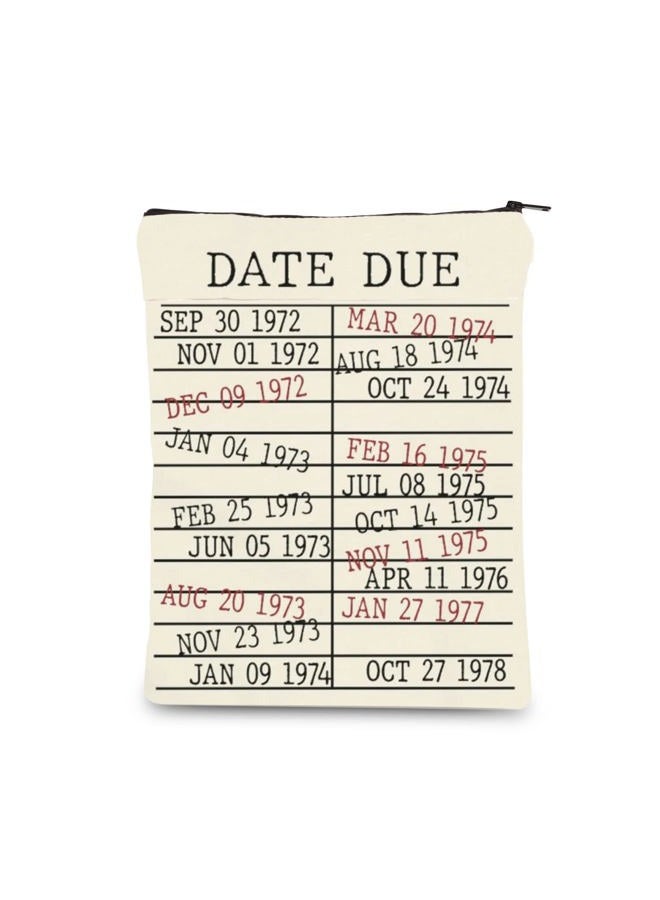 DATE DUE
SEP 30 1972
NOV 01 1972
DEC 09 1972
JAN 04 1973
FEB 25 1973
JUN 05 1973
AUG 20 1973
NOV 23 1973
JAN 09 1974
MAR 20 1974
AUG 18 1974
OCT 24 1974
FEB 16 1975
JUL 08 1975
OCT 14 1975
NOV 11 1975
APR 11 1976
JAN 27 1977
OCT 27 1978